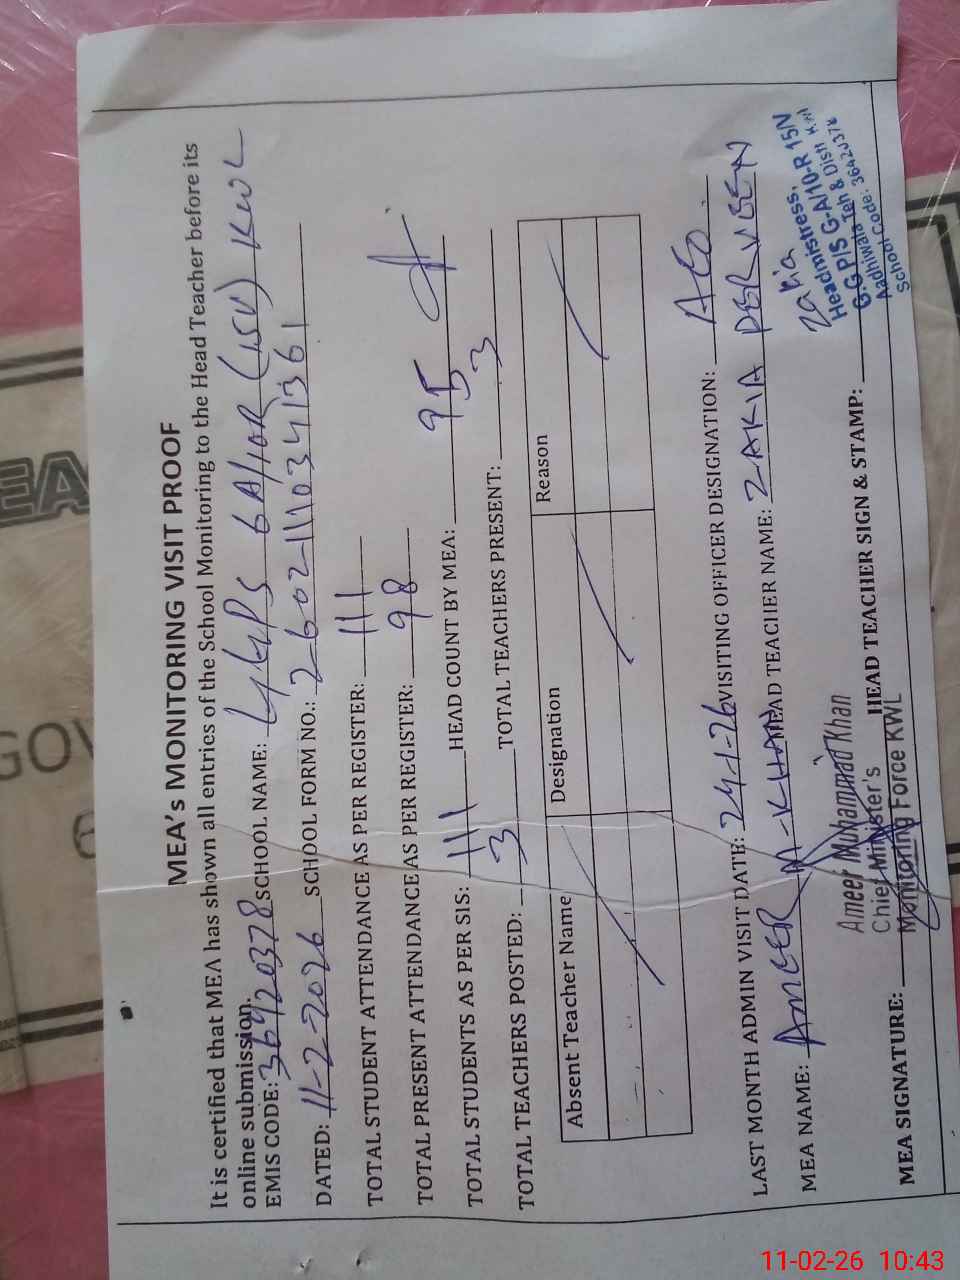 MEA's MONITORING VISIT PROOF
It is certified that MEA has shown all entries of the School Monitoring to the Head Teacher before its
online submission.
EMIS CODE: 36420378 SCHOOL NAME: GGPS 6A/10R (15V) KWL
DATED: 11-2-2026 SCHOOL FORM NO.: 26021110341361
TOTAL STUDENT ATTENDANCE AS PER REGISTER: 111
TOTAL PRESENT ATTENDANCE AS PER REGISTER: 98
TOTAL STUDENTS AS PER SIS: 111 HEAD COUNT BY MEA: 95
TOTAL TEACHERS POSTED: 3 TOTAL TEACHERS PRESENT: 3
Absent Teacher Name Designation Reason
LAST MONTH ADMIN VISIT DATE: 24-1-26 VISITING OFFICER DESIGNATION: AEO
MEA NAME: AMEER M-KHAN HEAD TEACHER NAME: ZAKIA PERVEEN
Ameer Muhammad Khan
Chief Minister's
Monitoring Force KWL
MEA SIGNATURE: HEAD TEACHER SIGN & STAMP:
Zakia
Headmistress,
G.G P/S G-A/10-R 15/V
Aadhiwala Teh & Distt
School Code: 36420378
GOV
6
EA
11-02-26 10:43